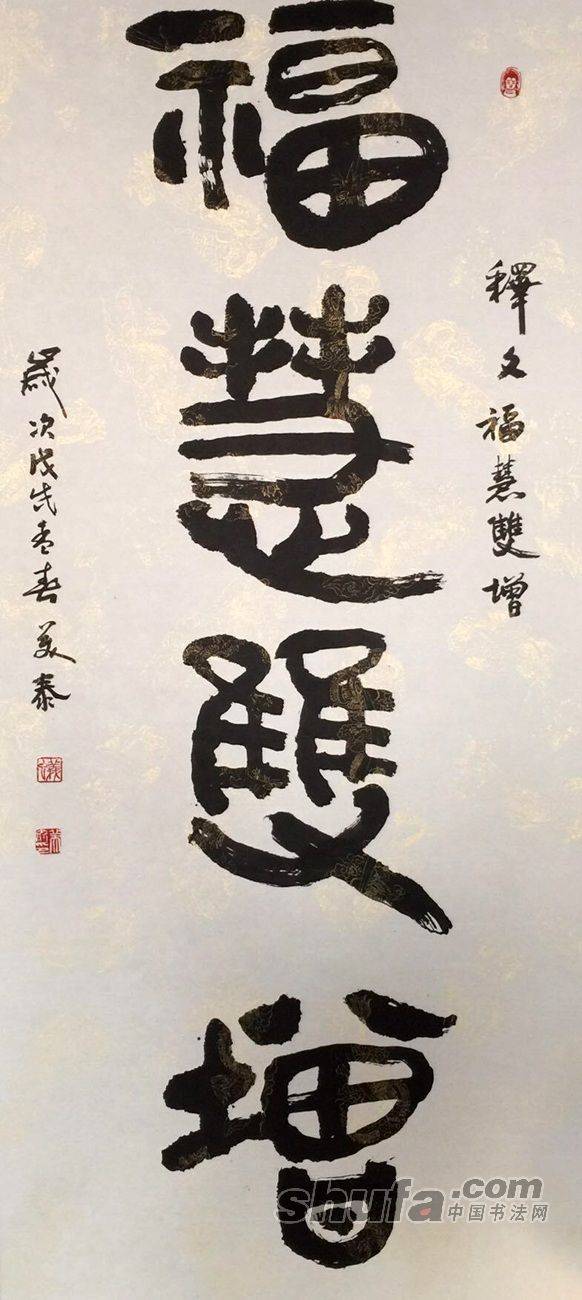 福慧雙增
釋文福慧雙增
歲次戊戌孟春美泰
shufa.com
中国书法网